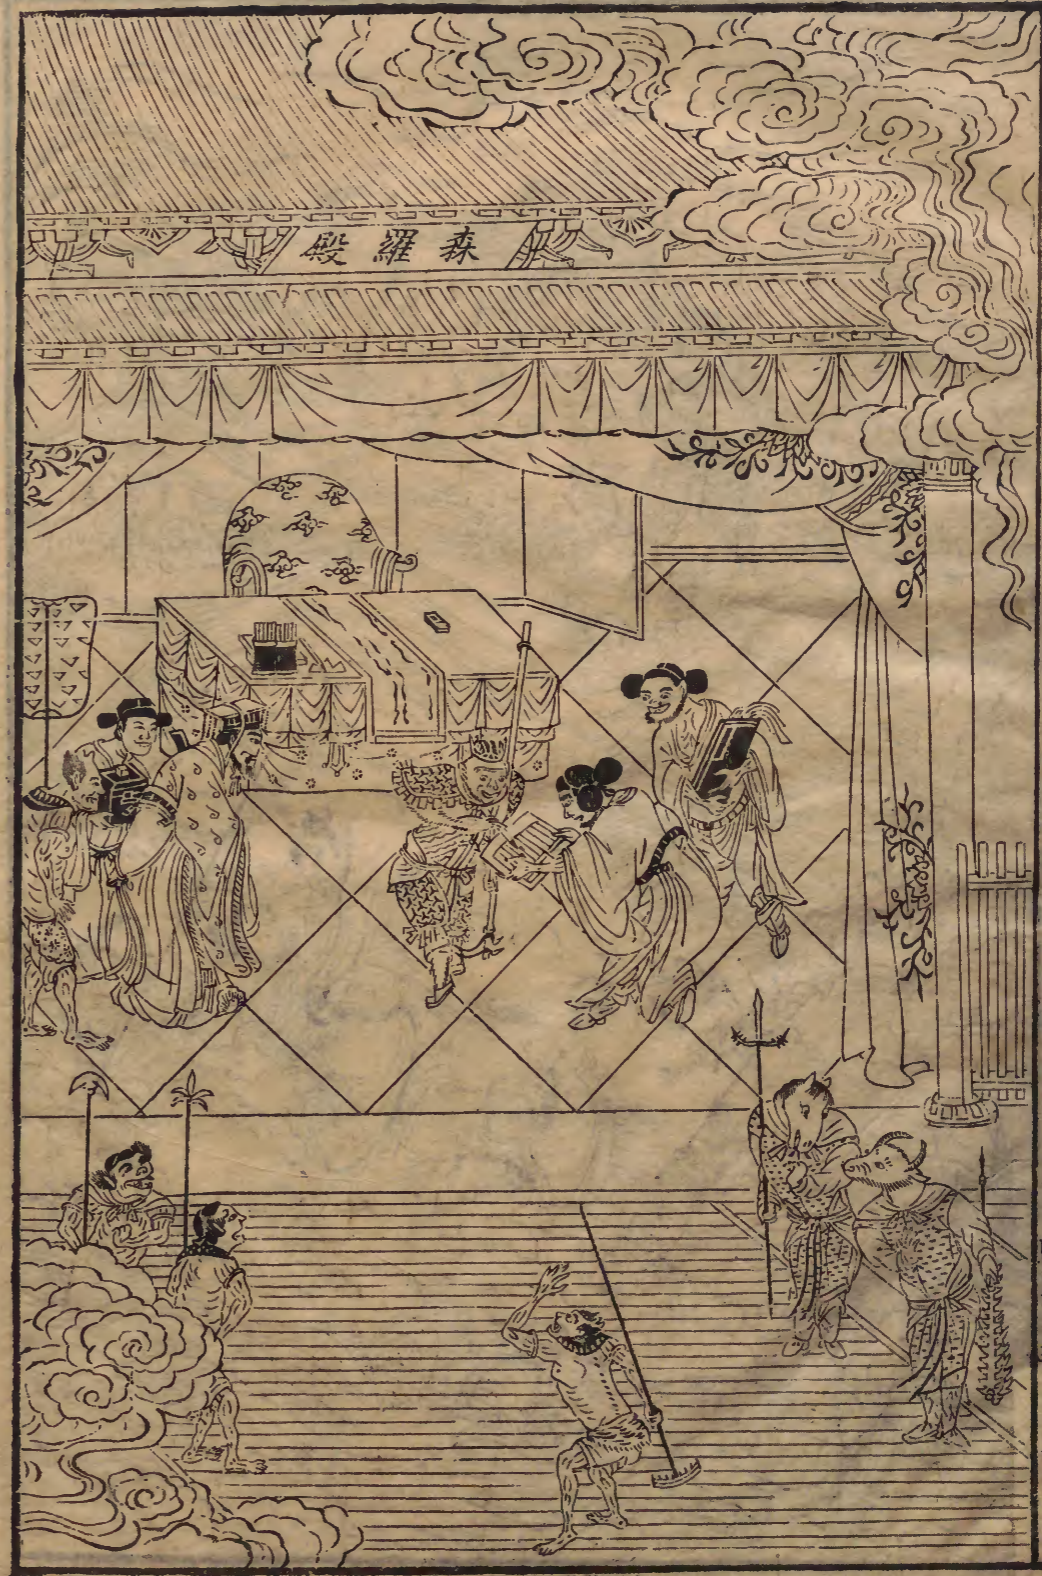 森羅殿